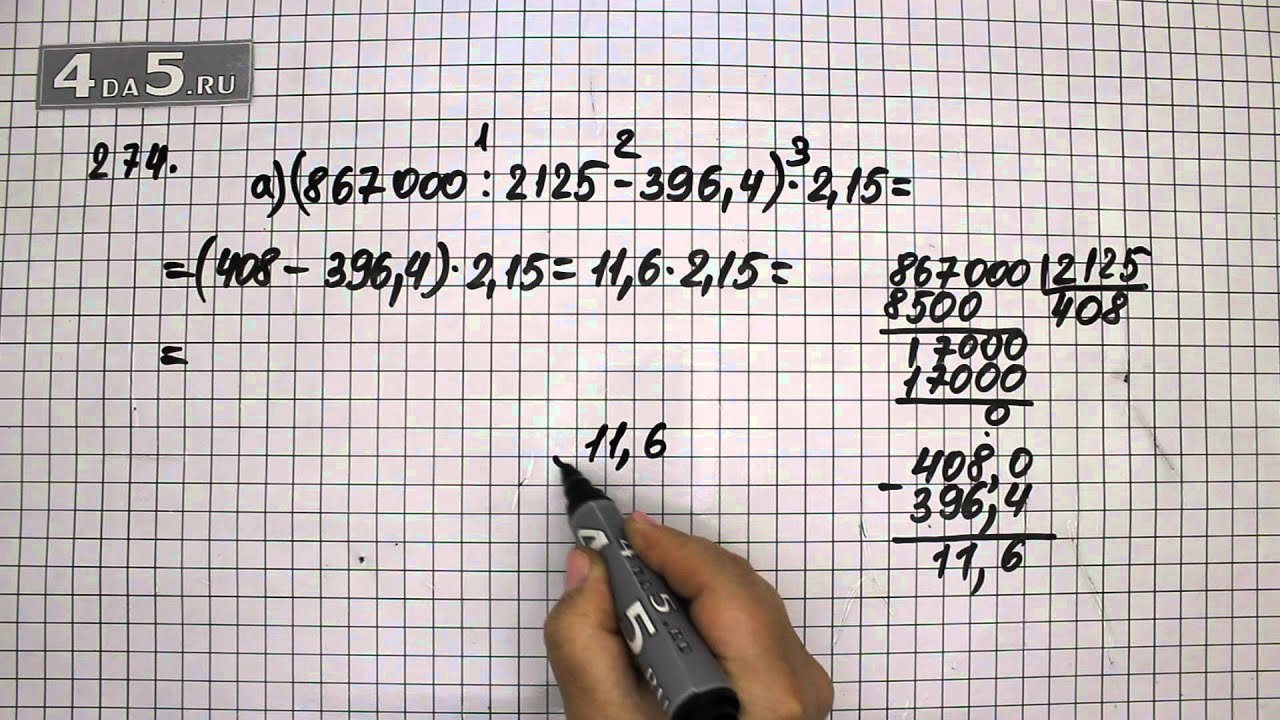 4DA5.RU
274.
1 2 3
а)(867000:2125-396,4)·2,15=
=(408-396,4)·2,15=11,6·2,15=
=
867000 2125
8500 408
17000
17000
0
408,0
-396,4
11,6
11,6
4DA5.RU